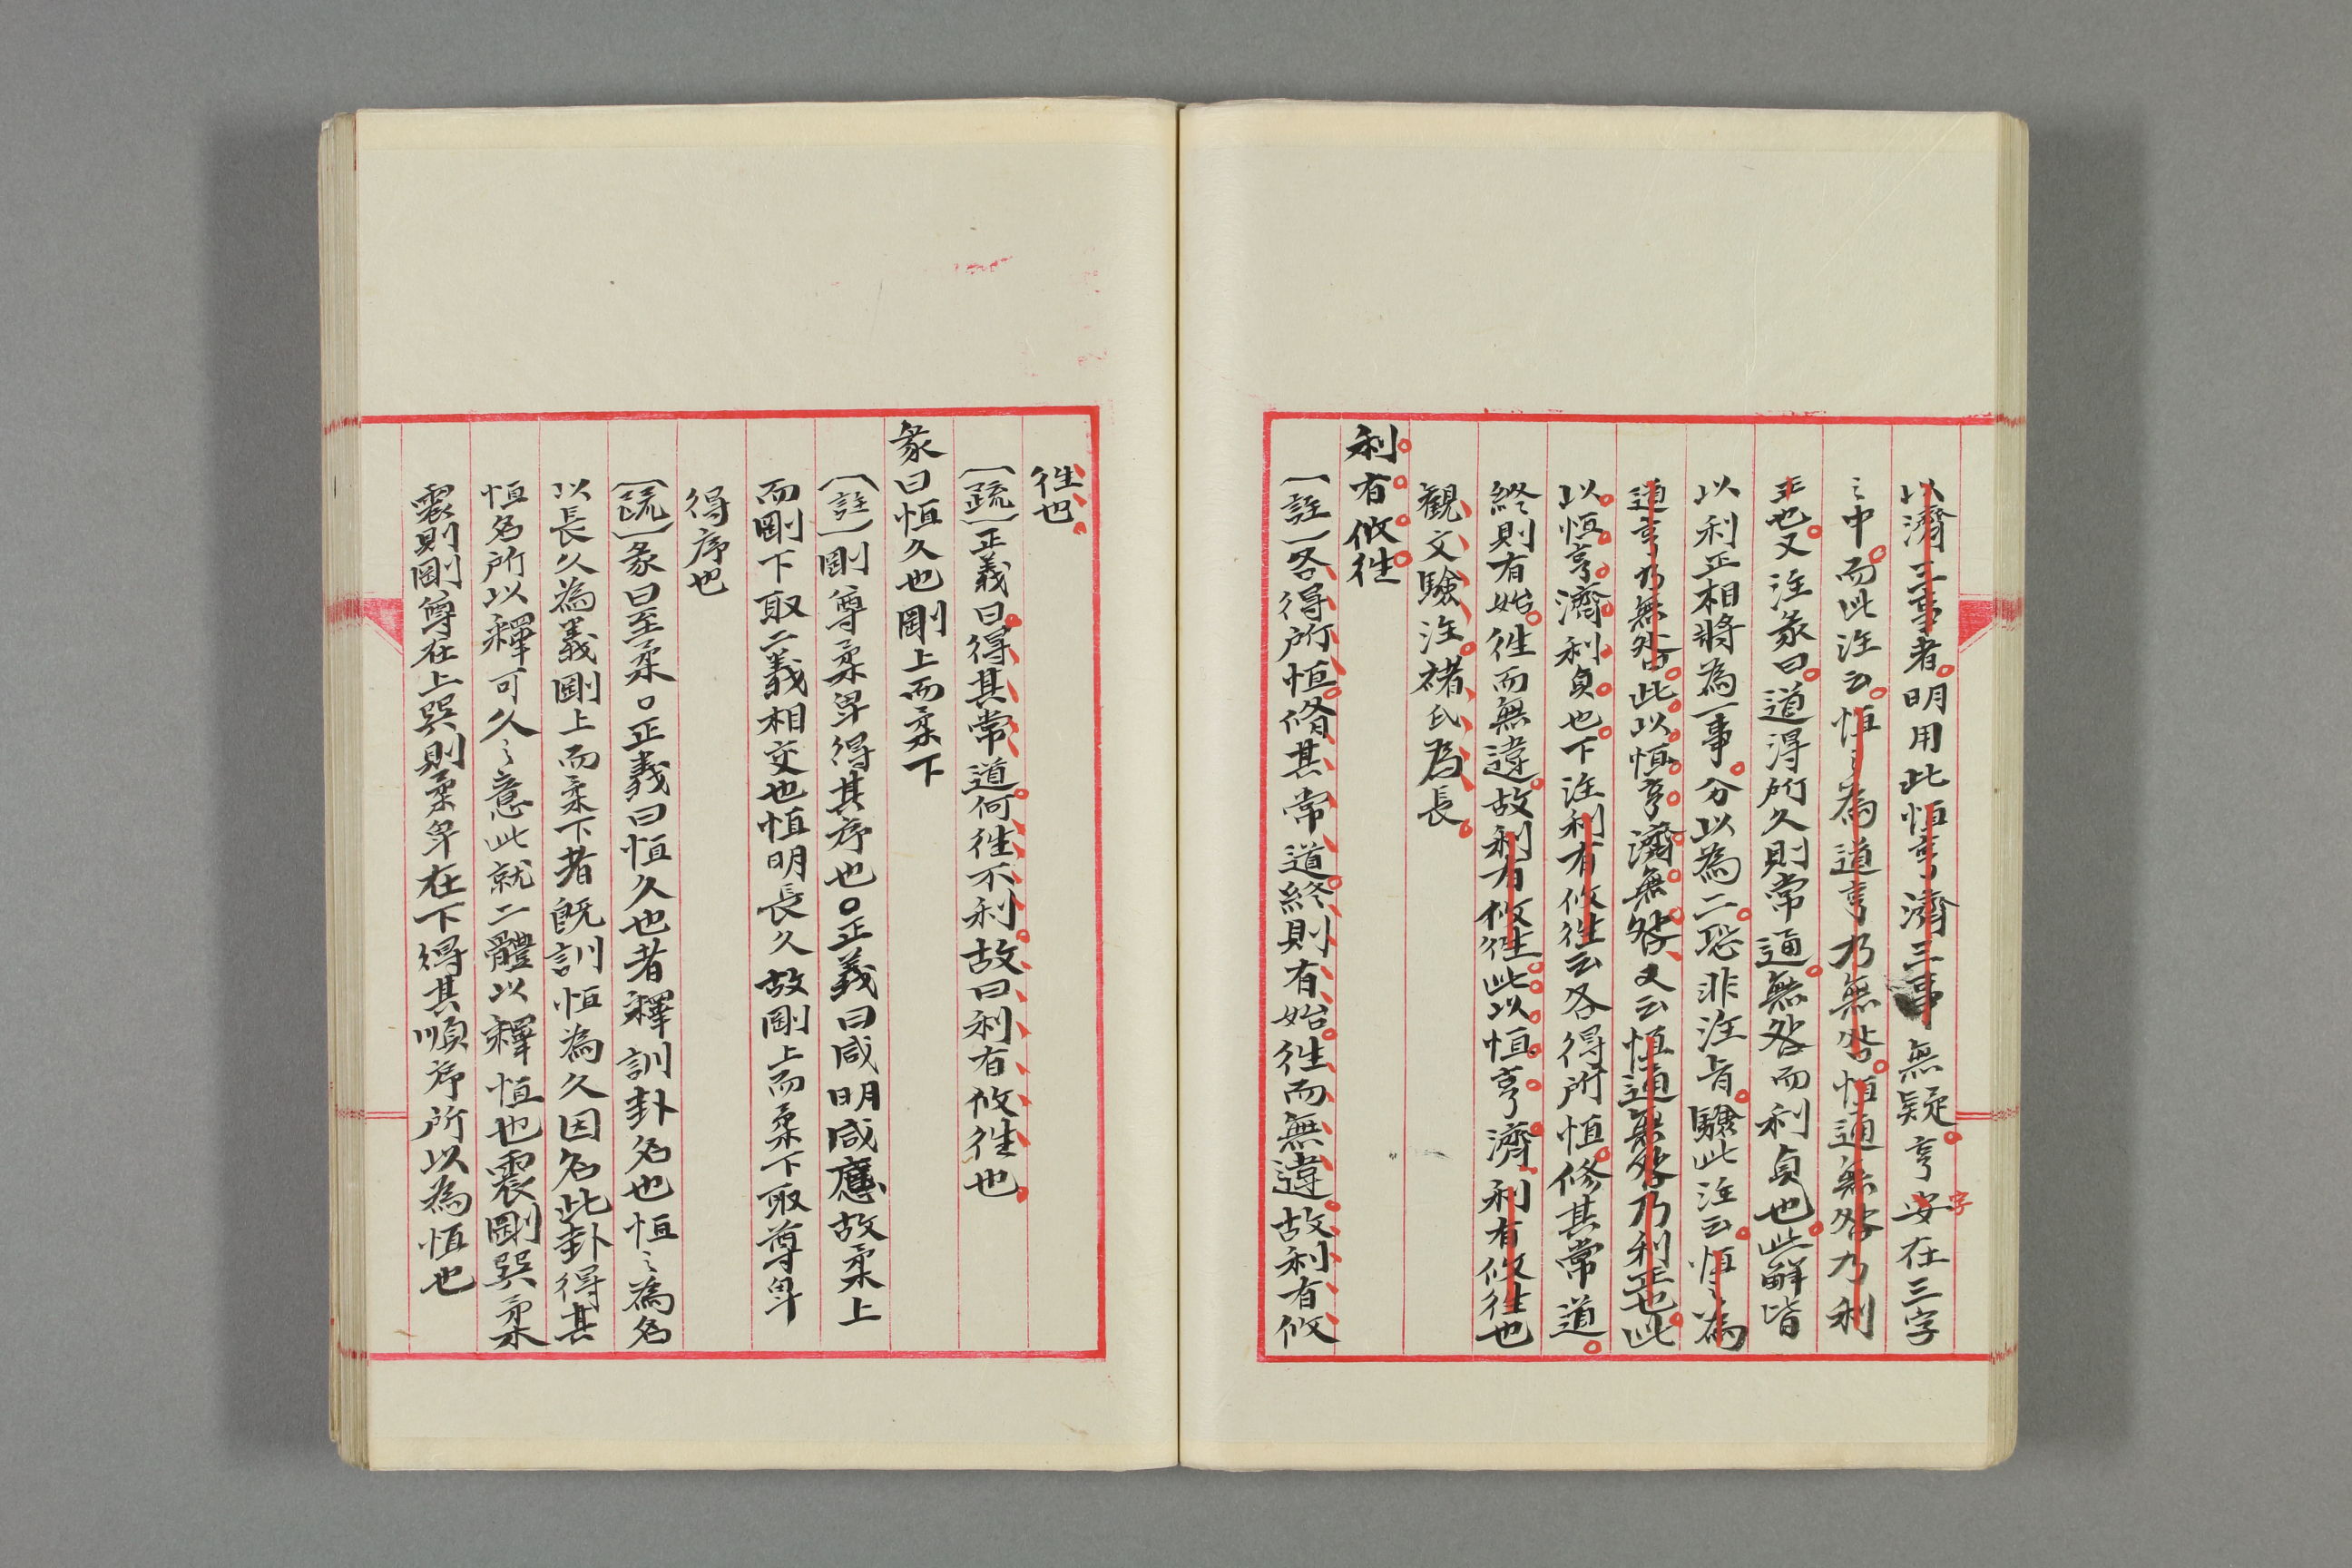 以濟三事者明用此恒亨濟三事無疑亨字安在三字
〻中而此注云恒〻為道亨乃無咎恒通無咎乃利
正也又注彖曰道得所久則常通無咎而利貞也此解皆
以利正相將為一事分以為二恐非注旨驗此注云恒〻為
道亨乃無咎此以恒亨濟無咎又云恒通無咎乃利正也此
以恒亨濟利貞也下注利有攸往云各得所恒修其常道
終則有始往而無違故利有攸往此以恒亨濟利有攸往也
觀文驗注褚氏為長
利有攸往
〔註〕各得所恒脩其常道終則有始往而無違故利有攸
往也
〔疏〕正義曰得其常道何往不利故曰利有攸往也
彖曰恒久也剛上而柔下
〔註〕剛尊柔卑得其序也○正義曰咸明咸應故柔上
而剛下取二義相交也恒明長久故剛上而柔下取尊卑
得序也
〔疏〕彖曰至柔○正義曰恒久也者釋訓卦名也恒〻為名
以長久為義剛上而柔下者既訓恒為久因名此卦得其
恒名所以釋可久〻意此就二體以釋恒也震剛巽柔
震則剛尊在上巽則柔卑在下得其順序所以為恒也